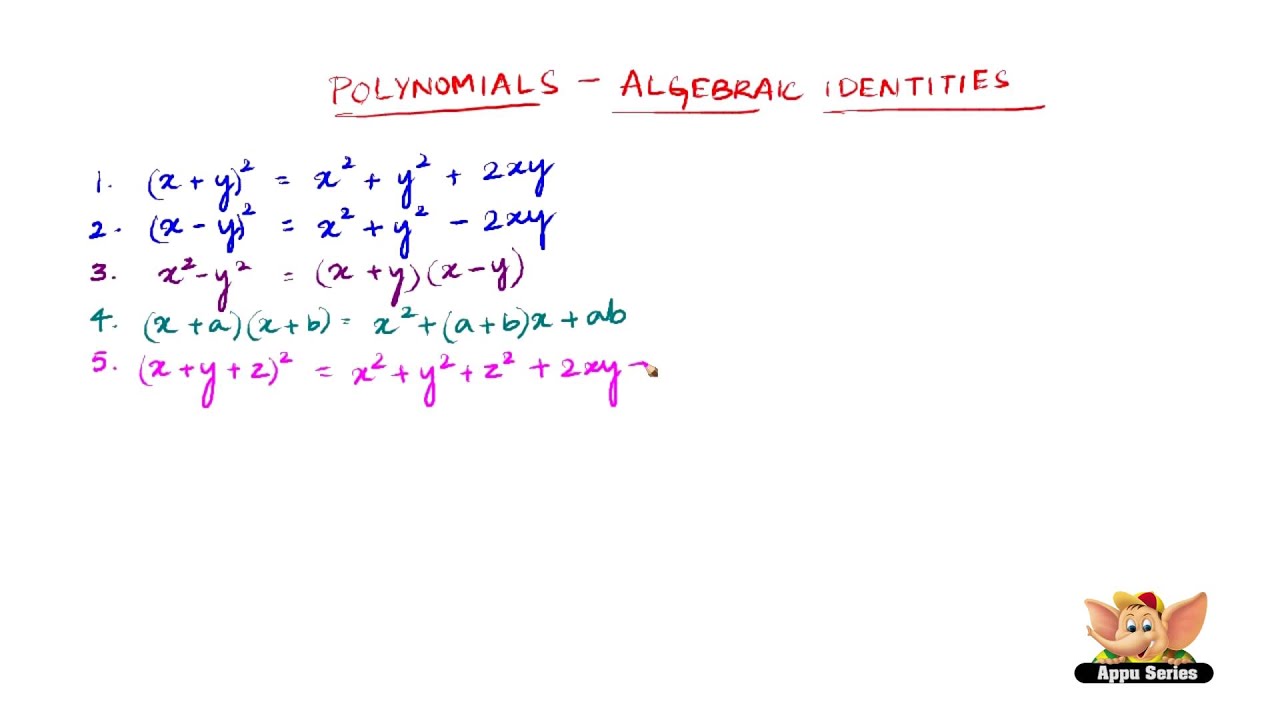 POLYNOMIALS - ALGEBRAIC IDENTITIES
1. (x + y)² = x² + y² + 2xy
2. (x - y)² = x² + y² - 2xy
3. x² - y² = (x + y)(x - y)
4. (x + a)(x + b) = x² + (a + b)x + ab
5. (x + y + z)² = x² + y² + z² + 2xy -
Appu Series